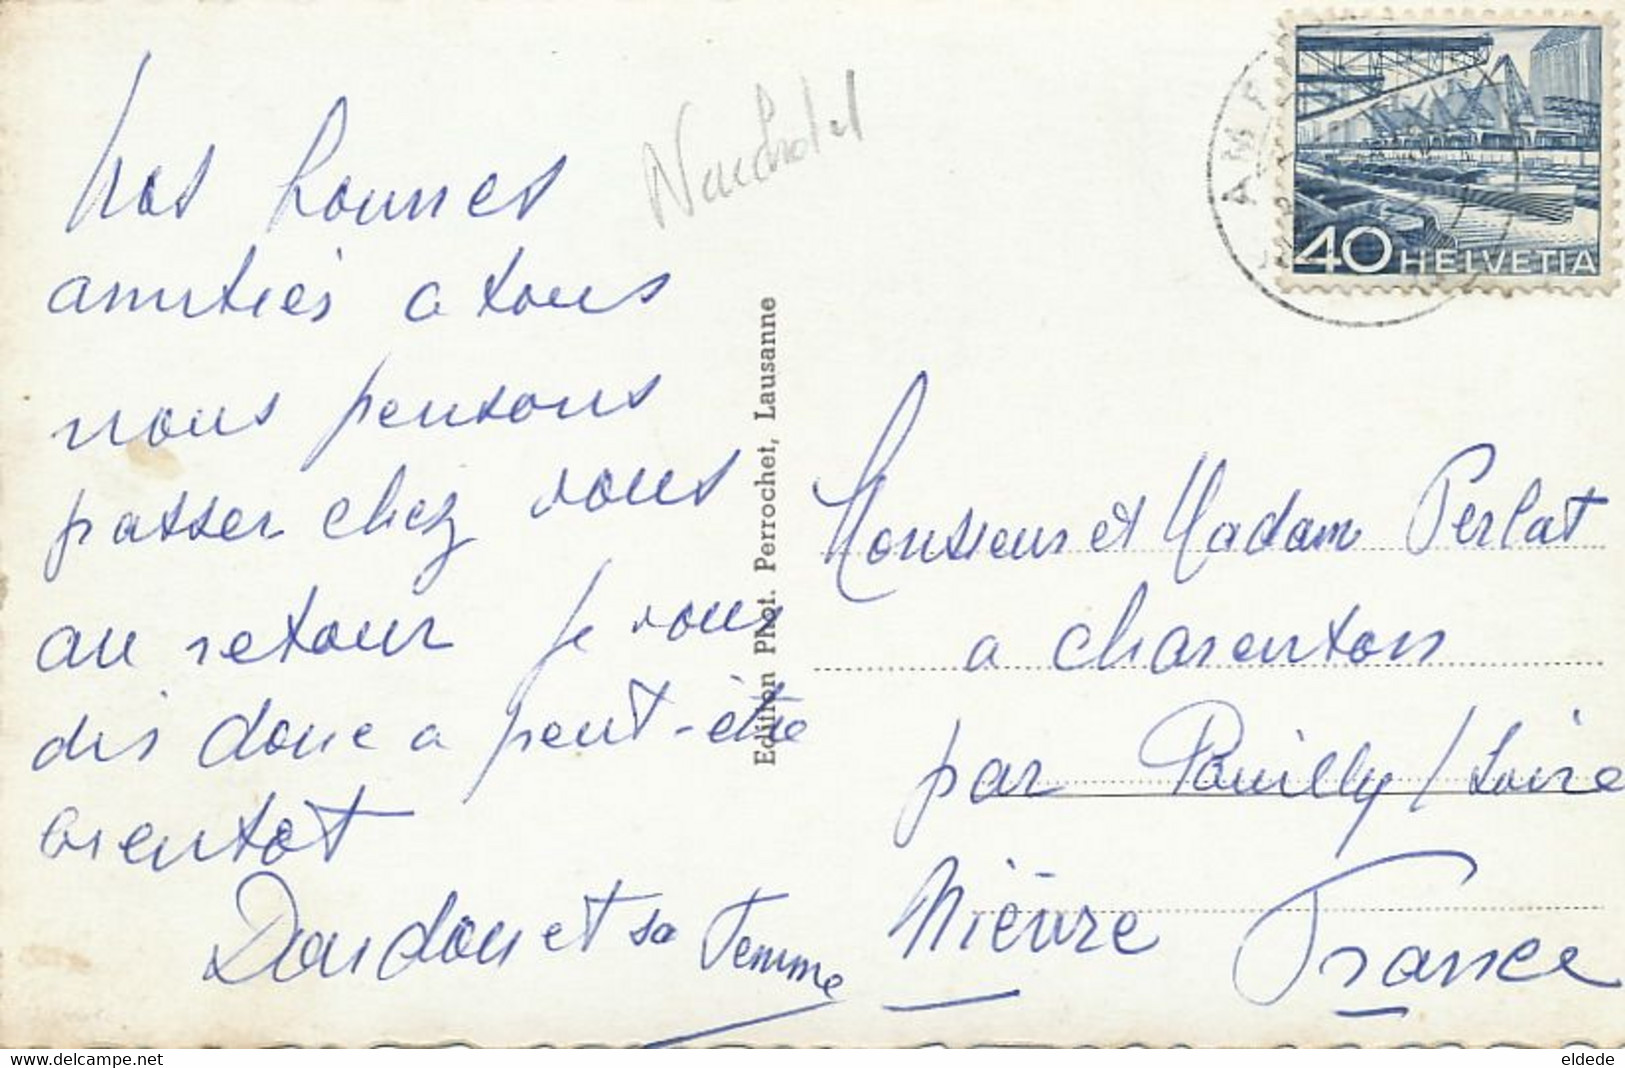 Nos bonnes
amitiés a tous
nous pensons
passer chez vous
au retour je vous
dis donc a peut-être
bientôt
Doudou et sa Femme
Neuchatel
Edition Phot. Perrochet, Lausanne
40 HELVETIA
AMB
Monsieur et Madam Perlat
a Charenton
par Pouilly / Loire
Nièvre France
https://www.delcampe.net
eldede